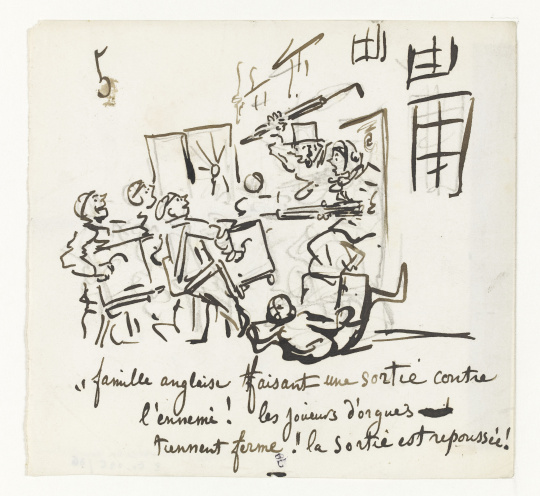 „ famille anglaise faisant une sortie contre
l'ennemi ! les joueurs d'orgues
tiennent ferme ! la sortie est repoussée !